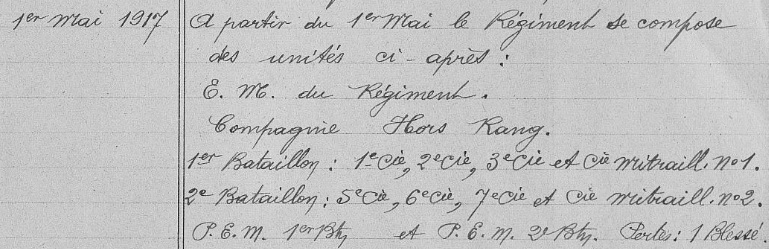 1er Mai 1917 A partir du 1er Mai le Régiment se compose
des unités ci-après :
E. M. du Régiment.
Compagnie Hors Rang.
1er Bataillon : 1e Cie, 2e Cie, 3e Cie et Cie mitraill. no 1.
2e Bataillon : 5e Cie, 6e Cie, 7e Cie et Cie mitraill. no 2.
P. E. M. 1er Btn et P. E. M. 2e Btn. Pertes : 1 Blessé.